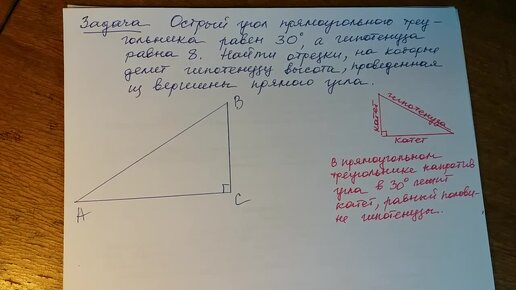 Задача Острый угол прямоугольного треу-
гольника равен 30°, а гипотенуза
равна 8. Найти отрезки, на которые
делит гипотенузу высота, проведенная
из вершины прямого угла.
B
A
C
катет
гипотенуза
катет
В прямоугольном
треугольнике напротив
угла в 30° лежит
катет, равный полови-
не гипотенузы.